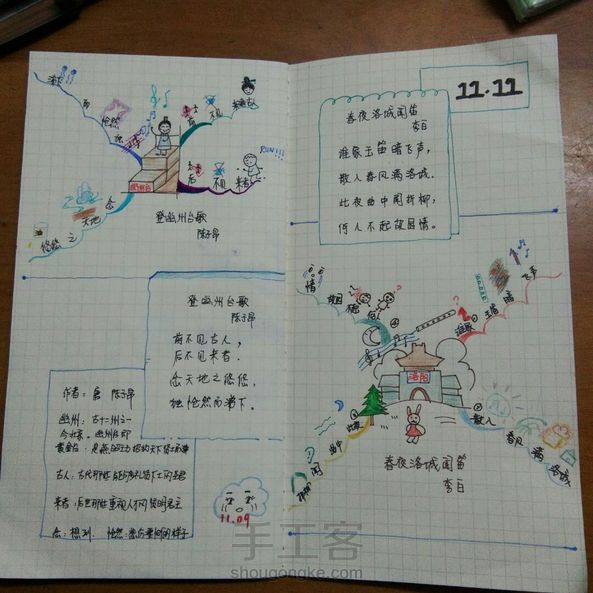 涕下
而
怆然
独
前
不见
古人
后
不见
来者
RUN!!!
幽州台
念
天地
之
悠悠
登幽州台歌
陈子昂
登幽州台歌
陈子昂
前不见古人,
后不见来者.
念天地之悠悠,
独怆然而涕下。
作者: 唐 陈子昂
幽州: 古十二州之一
今北京。幽州台即
黄金台:
古人: 古代那些
来者: 后世那些重视人才的贤明君主
念: 想到. 怆然: 悲伤凄凉的样子
11.09
11.11
春夜洛城闻笛
李白
谁家玉笛暗飞声,
散入春风满洛城.
此夜曲中闻折柳,
何人不起故园情。
情
故园
不起
何人
谁家
玉笛
暗
飞声
洛阳
此夜
曲中
闻
折柳
散入
春风
满
洛城
春夜洛城闻笛
李白
手工客
shougongke.com